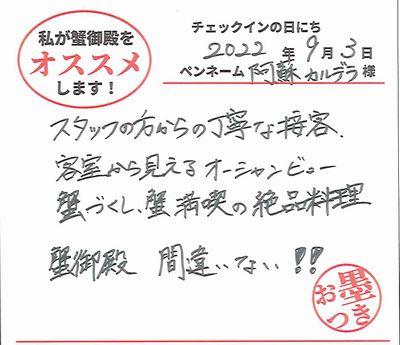 私が蟹御殿を
オススメ
します！
チェックインの日にち
2022年9月3日
ペンネーム 阿蘇カルデラ様
スタッフの方からの丁寧な接客、
客室から見えるオーシャンビュー
蟹づくし、蟹満喫の絶品料理
蟹御殿 間違いない！！
お墨つき